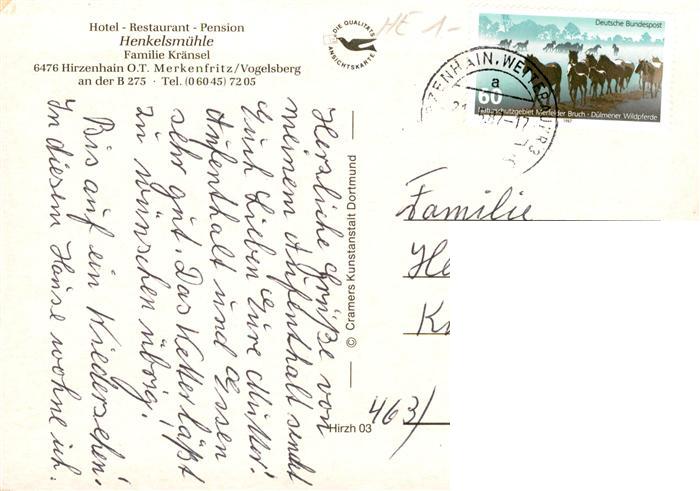 Hotel - Restaurant - Pension
Henkelsmühle
Familie Kränsel
6476 Hirzenhain O.T. Merkenfritz/Vogelsberg
an der B 275 · Tel. (0 60 45) 72 05
DIE QUALITÄTS
ANSICHTSKARTE
HE 1-
Deutsche Bundespost
60
Naturschutzgebiet Merfelder Bruch · Dülmener Wildpferde
1987
ZENHAIN, WETTERAU
a
Herzliche Grüße von
meinem Aufenthalt sendt
Euch Lieben Eure Mutter!
Aufenthalt und Essen
sehr gut. Das Wetter läßt
zu wünschen übrig!
Bis auf ein Wiedersehen!
In diesem Hause wohne ich.
© Cramers Kunstanstalt Dortmund
Hirzh 03
Familie
He
K
463/